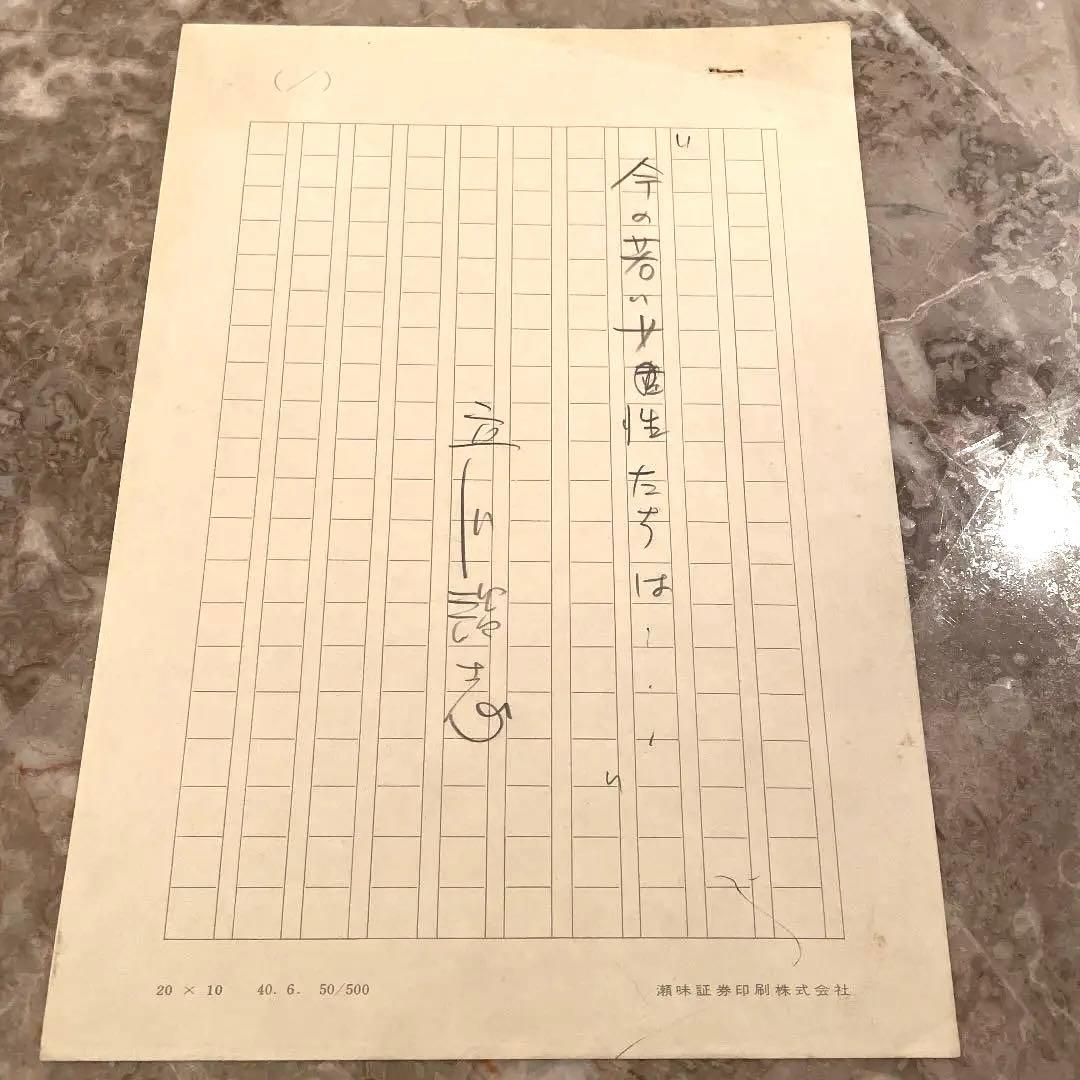 (1)
〝今の若い女性たちは・・・〟
立川談志
20 × 10 40. 6. 50/500
瀬味証券印刷株式会社